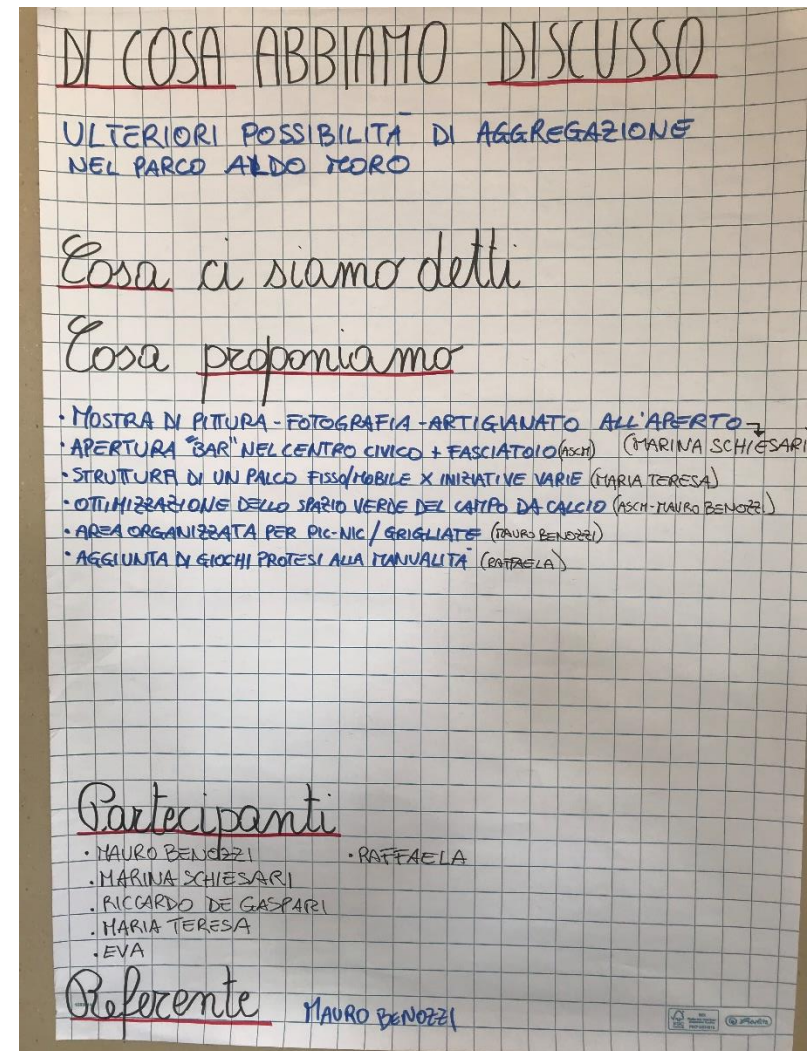 DI COSA ABBIAMO DISCUSSO
ULTERIORI POSSIBILITÀ DI AGGREGAZIONE
NEL PARCO ALDO MORO
Cosa ci siamo detti
Cosa proponiamo
• MOSTRA DI PITTURA - FOTOGRAFIA - ARTIGIANATO ALL'APERTO
(MARINA SCHIESARI)
• APERTURA "BAR" NEL CENTRO CIVICO + FASCIATOIO (ASCH)
• STRUTTURA DI UN PALCO FISSO/MOBILE X INIZIATIVE VARIE (MARIA TERESA)
• OTTIMIZZAZIONE DELLO SPAZIO VERDE DEL CAMPO DA CALCIO (ASCH-MAURO BENOZZI)
• AREA ORGANIZZATA PER PIC-NIC / GRIGLIATE (MAURO BENOZZI)
• AGGIUNTA DI GIOCHI PROTESI ALLA MANUALITÀ (RAFFAELA)
Partecipanti
• MAURO BENOZZI • RAFFAELA
• MARINA SCHIESARI
• RICCARDO DE GASPARI
• MARIA TERESA
• EVA
Referente MAURO BENOZZI